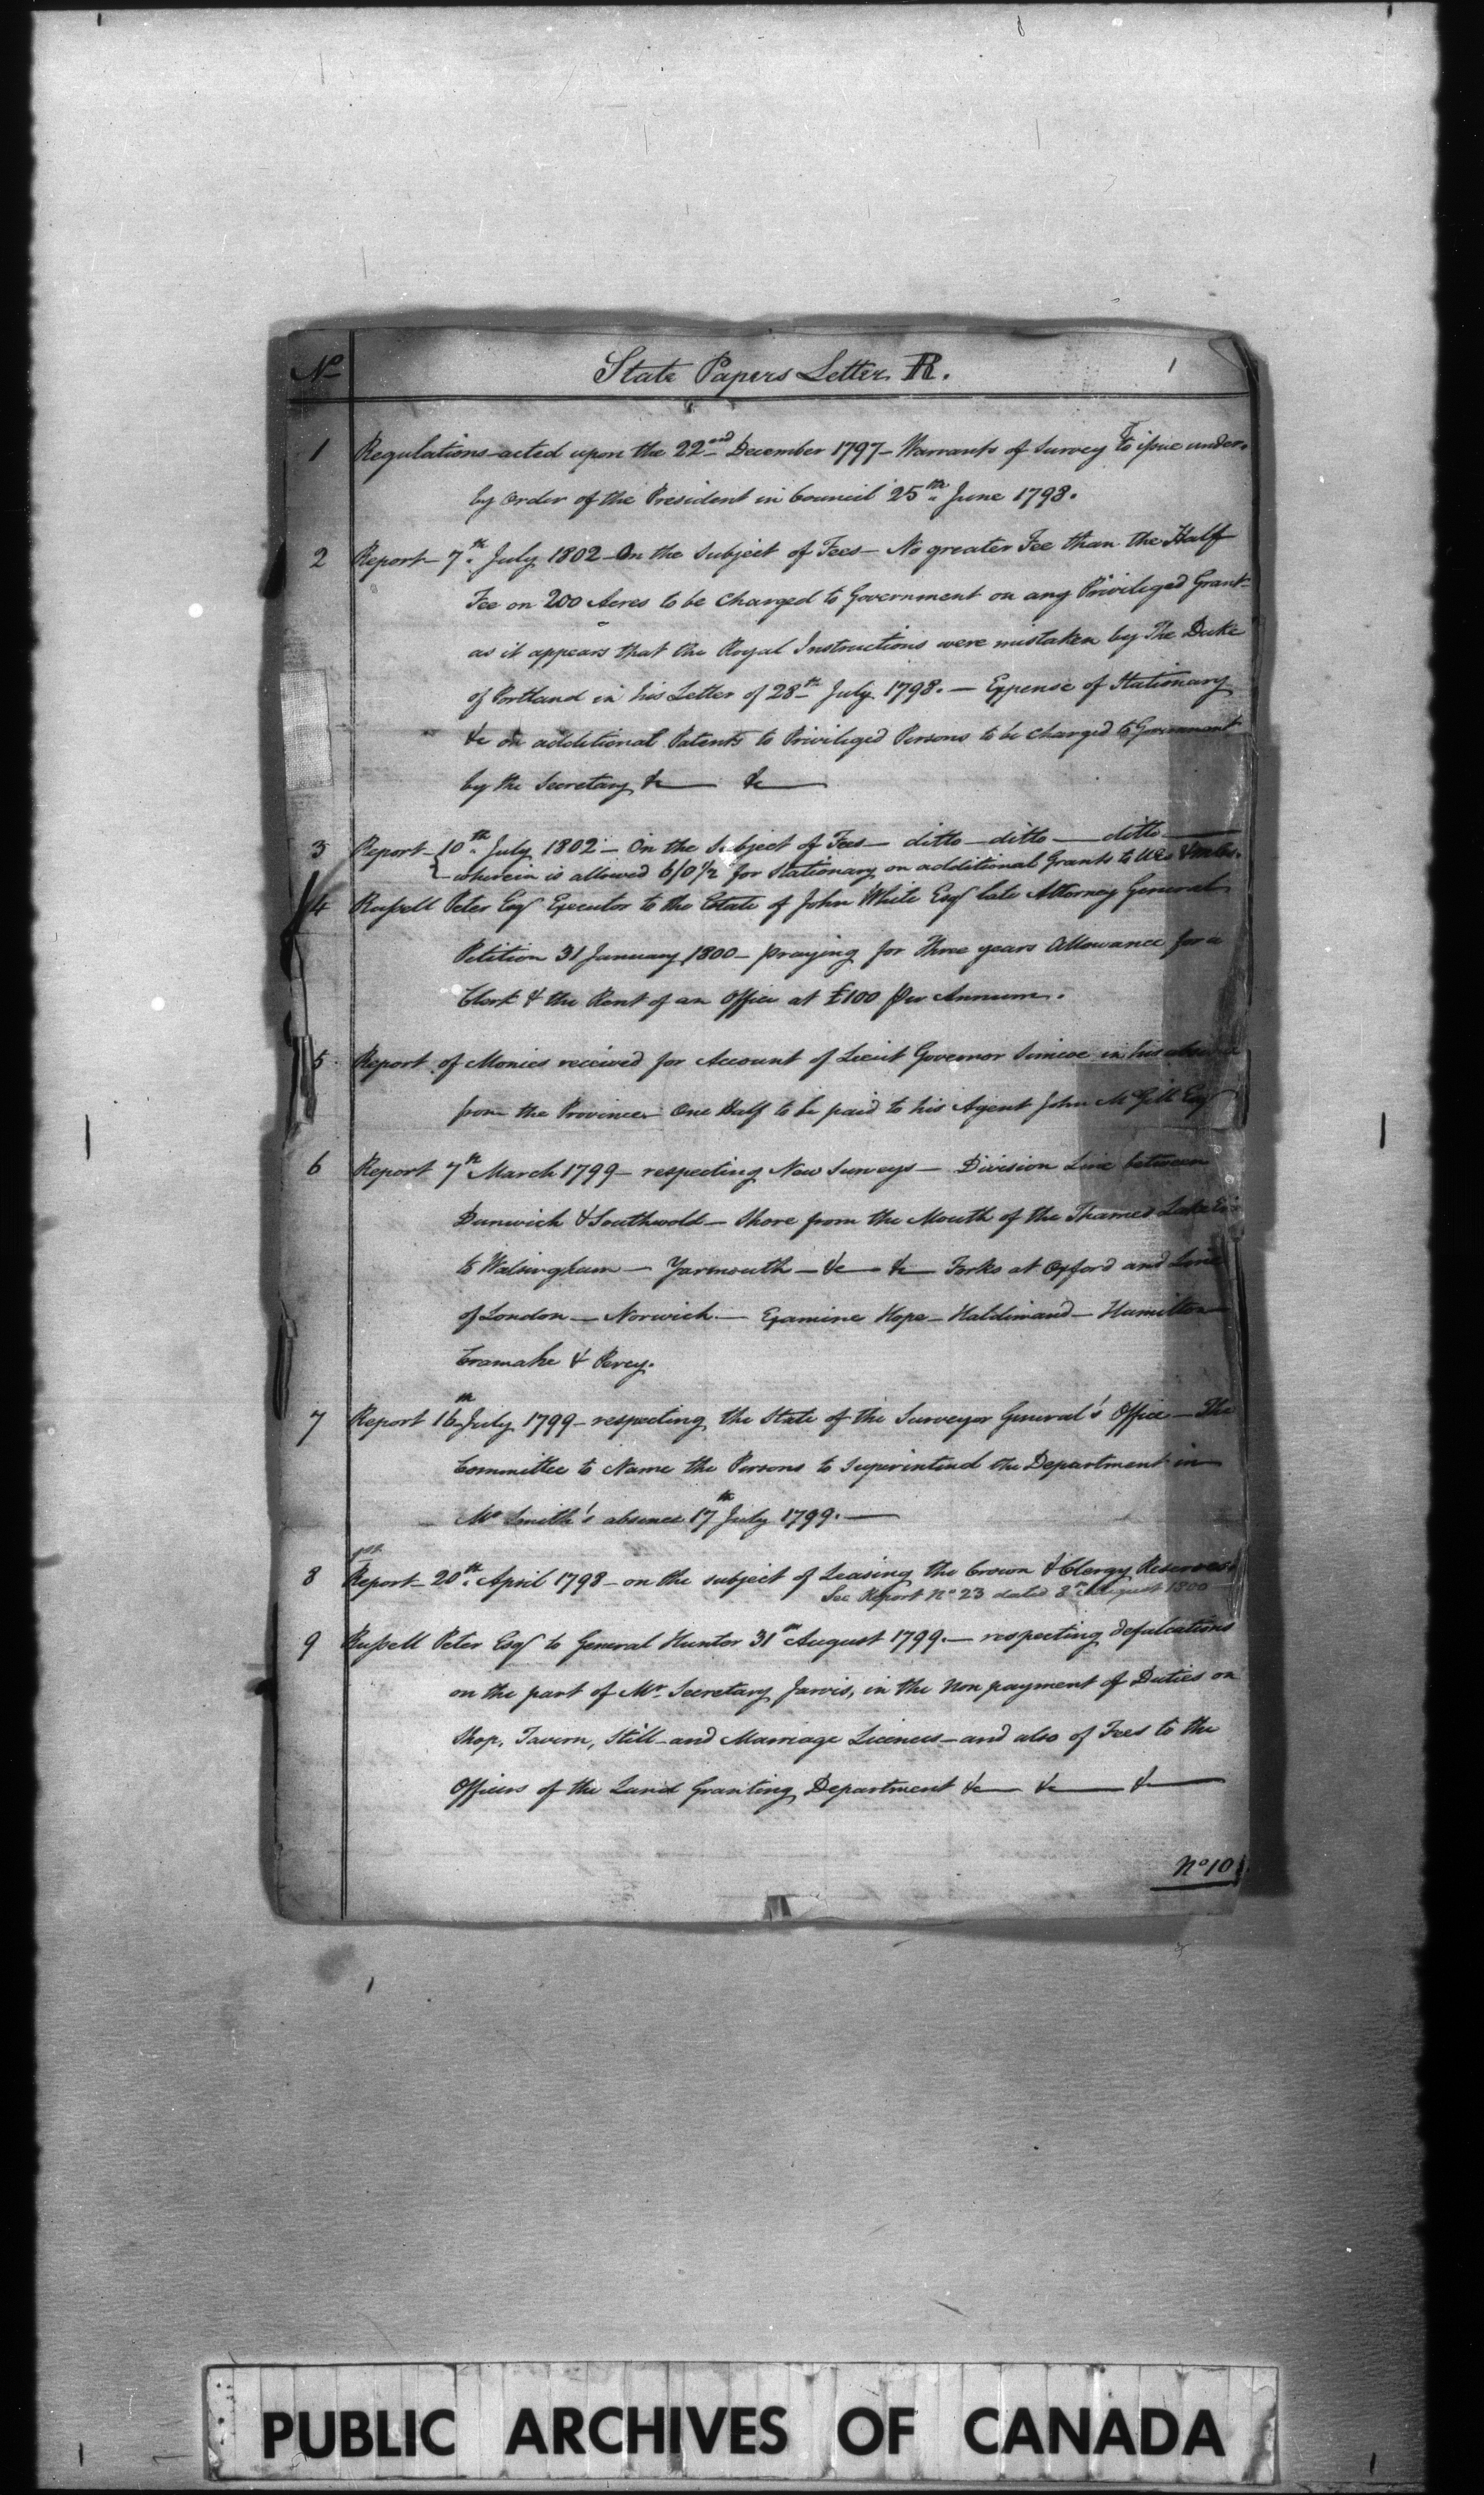 No State Papers Letter R. 1
1 Regulations acted upon the 22nd December 1797 - Warrants of Survey to issue under
by order of the President in Council 25th June 1798.
2 Report - 7th July 1802 - On the Subject of Fees - No greater Fee than the Half
Fee on 200 Acres to be Charged to Government on any Privileged Grant
as it appears that the Royal Instructions were mistaken by The Duke
of Portland in his Letter of 28th July 1798. - Expense of Stationary
&c on additional Patents to Privileged Persons to be charged to Government
by the Secretary &c &c
3 Report - 10th July 1802 - On the Subject of Fees - ditto - ditto - ditto
wherein is allowed 6/0½ for Stationary on additional Grants to
4 Russell Peter Esqr Executor to the Estate of John White Esqr late Attorney General
Petition 31 January 1800 - praying for Three years Allowance for a
Clerk & the Rent of an Office at £100 Per Annum.
5 Report of Monies received for Account of Lieut Governor Simcoe in his absence
from the Province - One Half to be paid to his Agent John McGill Esqr
6 Report 7th March 1799 - respecting New Surveys - Division Line between
Dunwich & Southwold - Shore from the Mouth of the Thames Lake
to Walsingham - Yarmouth - &c - &c - Forks at Oxford and Line
of London - Norwich - Examine Hope - Haldimand - Hamilton
Cramahe & Percy.
7 Report 16th July 1799 - respecting the State of the Surveyor General's Office - The
Committee to Name the Persons to Superintend the Department in
Mr Smith's absence 17th July 1799.
8 Report - 20th April 1798 - on the subject of Leasing the Crown & Clergy Reserves
See Report No 23 dated 8th August 1800
9 Russell Peter Esqr to General Hunter 31st August 1799. - respecting defalcations
on the part of Mr Secretary Jarvis, in the non payment of Duties on
Shop, Tavern, Still - and Marriage Licences - and also of Fees to the
Officers of the Land Granting Department &c &c &c
No 10
PUBLIC ARCHIVES OF CANADA